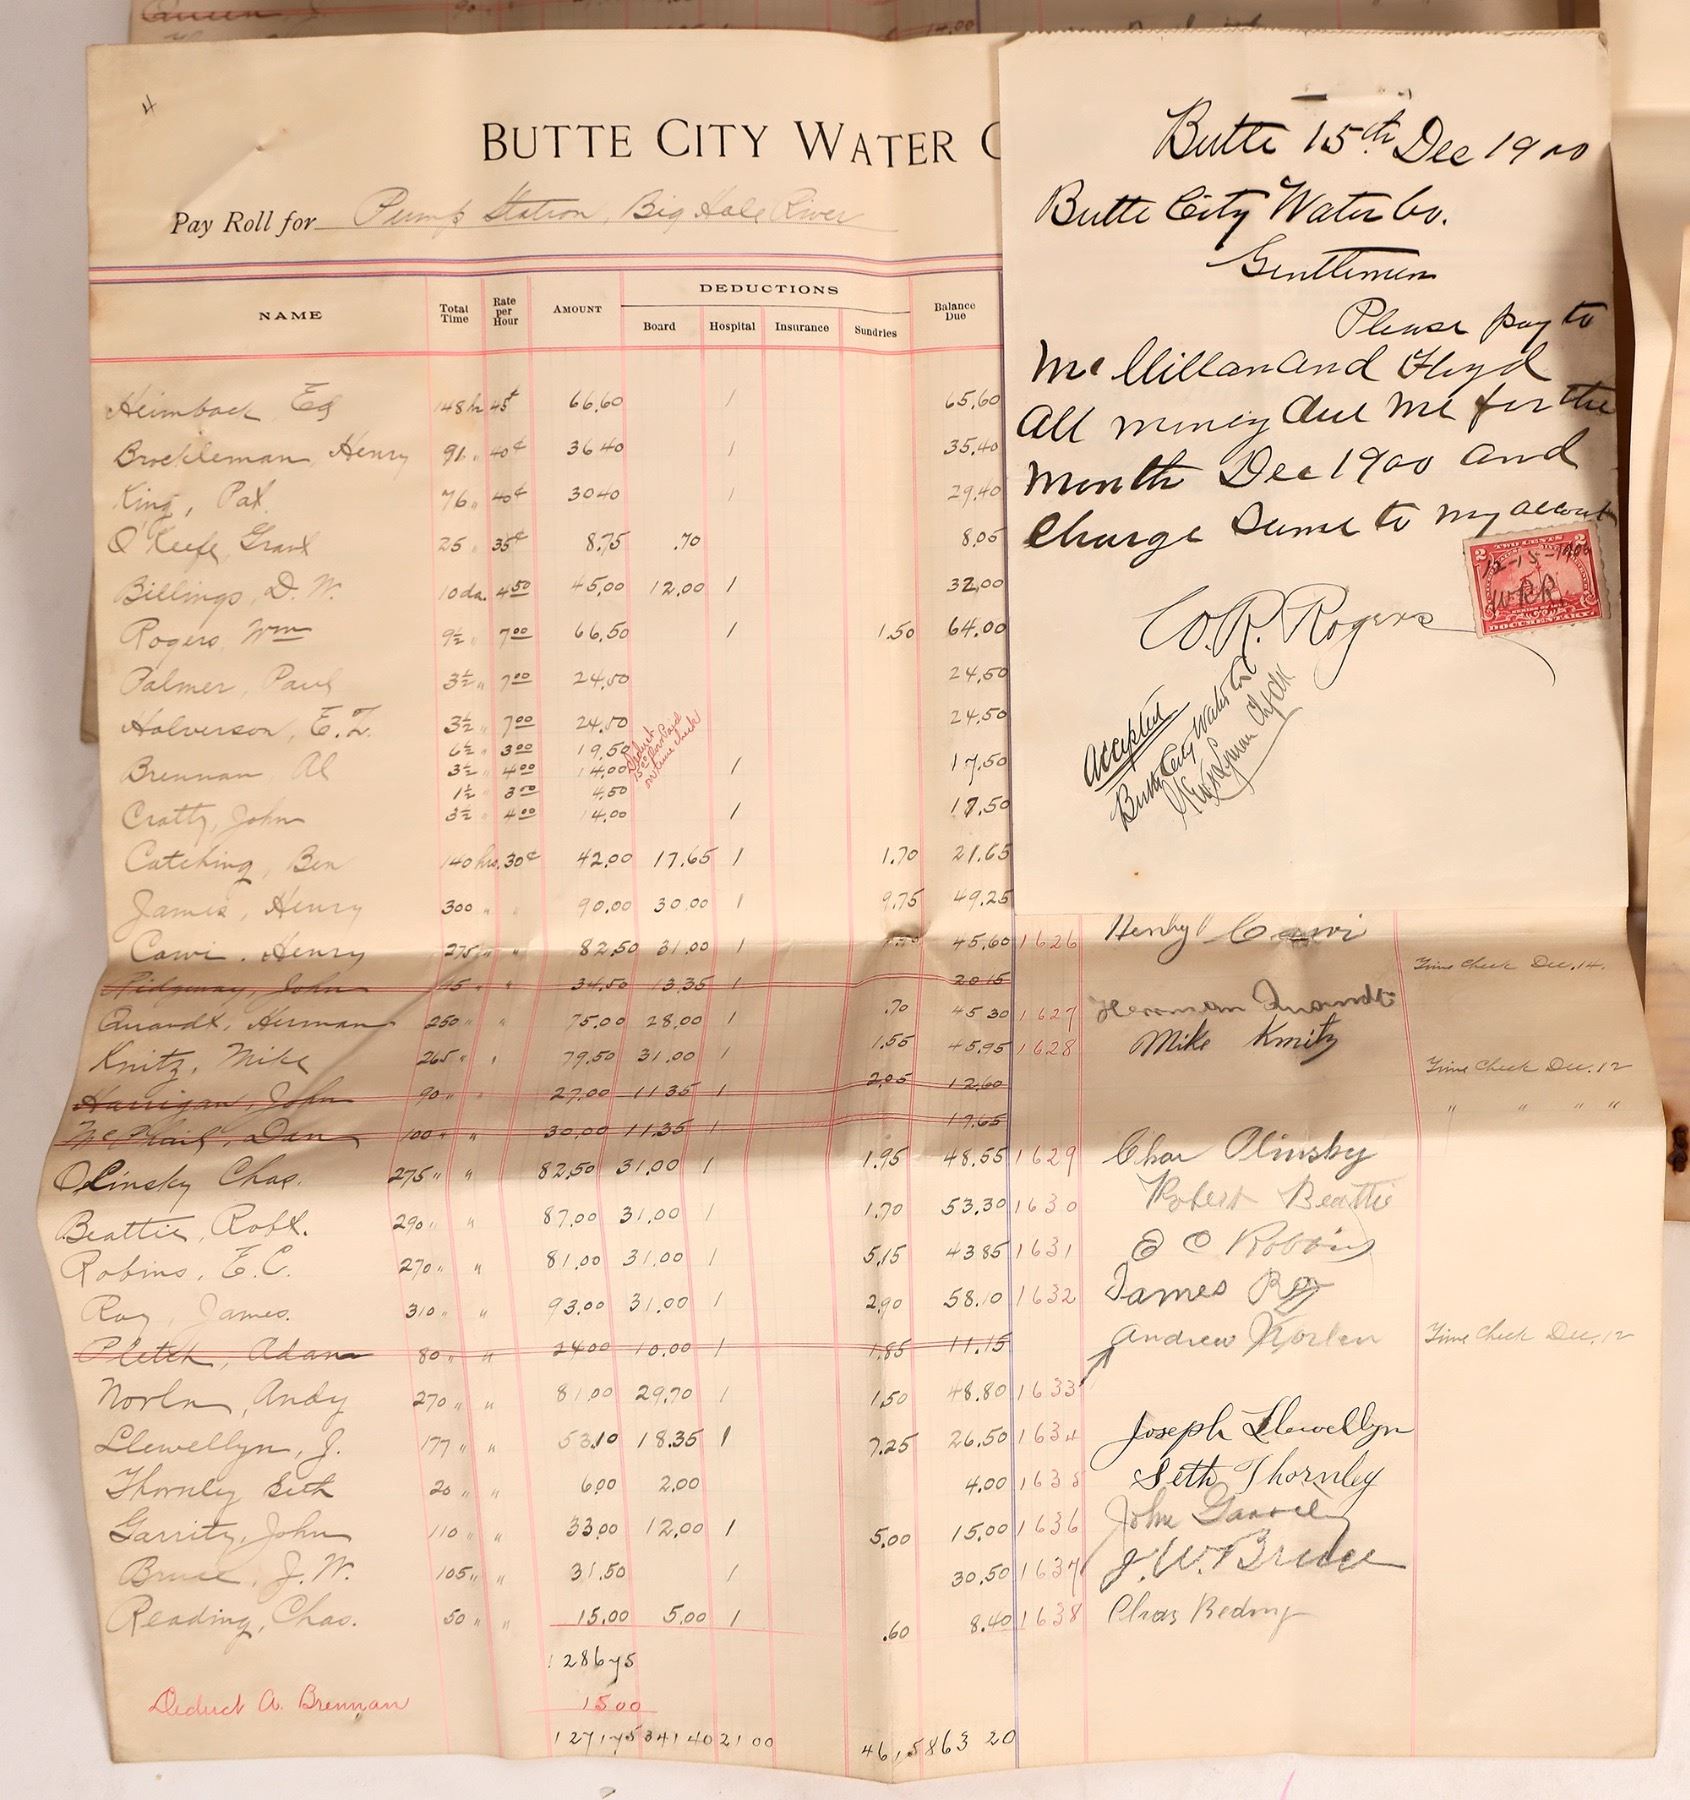 4
BUTTE CITY WATER C
Pay Roll for Pump Station, Big Hole River
NAME Total Time Rate per Hour AMOUNT DEDUCTIONS Board Hospital Insurance Sundries Balance Due
Heimback Ed 148 hr 45¢ 66.60 1 65.60
Brockleman, Henry 91 " 40¢ 36 40 1 35.40
King, Pat. 76 " 40¢ 30 40 1 29.40
O'Keefe, Grant 25 " 35¢ 8.75 .70 8.05
Billings, D. W. 10 da. 4 50 45.00 12.00 1 32.00
Rogers, Wm 9½ " 7 00 66.50 1 1.50 64.00
Palmer, Paul 3½ " 7 00 24.50 24.50
Halverson, E. T. 3½ " 7 00 24.50 24.50
6½ " 3 00 19.50
Brennan, Al 3½ " 4 00 14.00 1 17.50
1½ " 3 00 4.50
Cratty, John 3½ " 4 00 14.00 1 17.50
Catching, Ben 140 hrs. 30¢ 42.00 17.65 1 1.70 21.65
James, Henry 300 " " 90.00 30.00 1 9.75 49.25
Cawi. Henry 275 " " 82.50 31.00 1 45.60 1626 Henry Cawi
Ridgway, John 115 " " 34.50 13.35 1 20 15 Time Check Dec. 14.
Quandt, Herman 250 " " 75.00 28.00 1 .70 45 30 1627 Herman Quandt
Knitz, Mike 265 " " 79.50 31.00 1 1.55 45.95 1628 Mike Knitz
Harrigan, John 90 " " 27.00 11 35 1 2.05 12.60 Time Check Dec. 12
McPhail, Dan 100 " " 30.00 11.35 1 17.65 " " " "
Olinsky Chas. 275 " " 82.50 31.00 1 1.95 48.55 1629 Chas Olinsky
Beattie, Robt. 290 " " 87.00 31.00 1 1.70 53.30 1630 Robert Beattie
Robins, E. C. 270 " " 81.00 31.00 1 5.15 43 85 1631 E C Robbins
Roy, James. 310 " " 93.00 31.00 1 2.90 58.10 1632 James Roy
Pletch, Adam 80 " " 24 00 10.00 1 1.85 11.15 Andrew Norlen Time Check Dec. 12
Norlen, Andy 270 " " 81.00 29.70 1 1.50 48.80 1633
Llewellyn, J. 177 " " 53.10 18.35 1 7.25 26.50 1634 Joseph Llewellyn
Thornley Seth 20 " " 6.00 2.00 4.00 1635 Seth Thornley
Garrity, John 110 " " 33.00 12.00 1 5.00 15.00 1636 John
Bruce, J. W. 105 " " 31.50 1 30.50 1637 J. W. Bruce
Reading, Chas. 50 " " 15.00 5.00 1 .60 8.40 1638 Chas Reding
1286 75
Deduct A. Brennan 15 00
1271 75 341 40 21 00 46 15 863 20
Butte 15th Dec 1900
Butte City Water Co.
Gentlemen
Please pay to
McMillan and Floyd
All money due me for the
Month Dec 1900 and
Charge same to my account
W. R. Rogers
TWO CENTS
2 2
12-15-1900
W.R.R.
DOCUMENTARY
Accepted
Butte City Water Co.